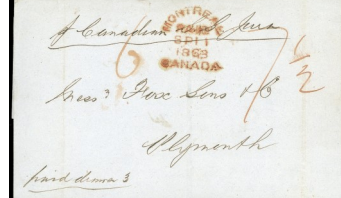 pr Canadian
MONTREAL
PAID
SP 11
1863
CANADA
6
7 1/2
Messrs Fox Sons & Co
Plymouth
paid drawer 3